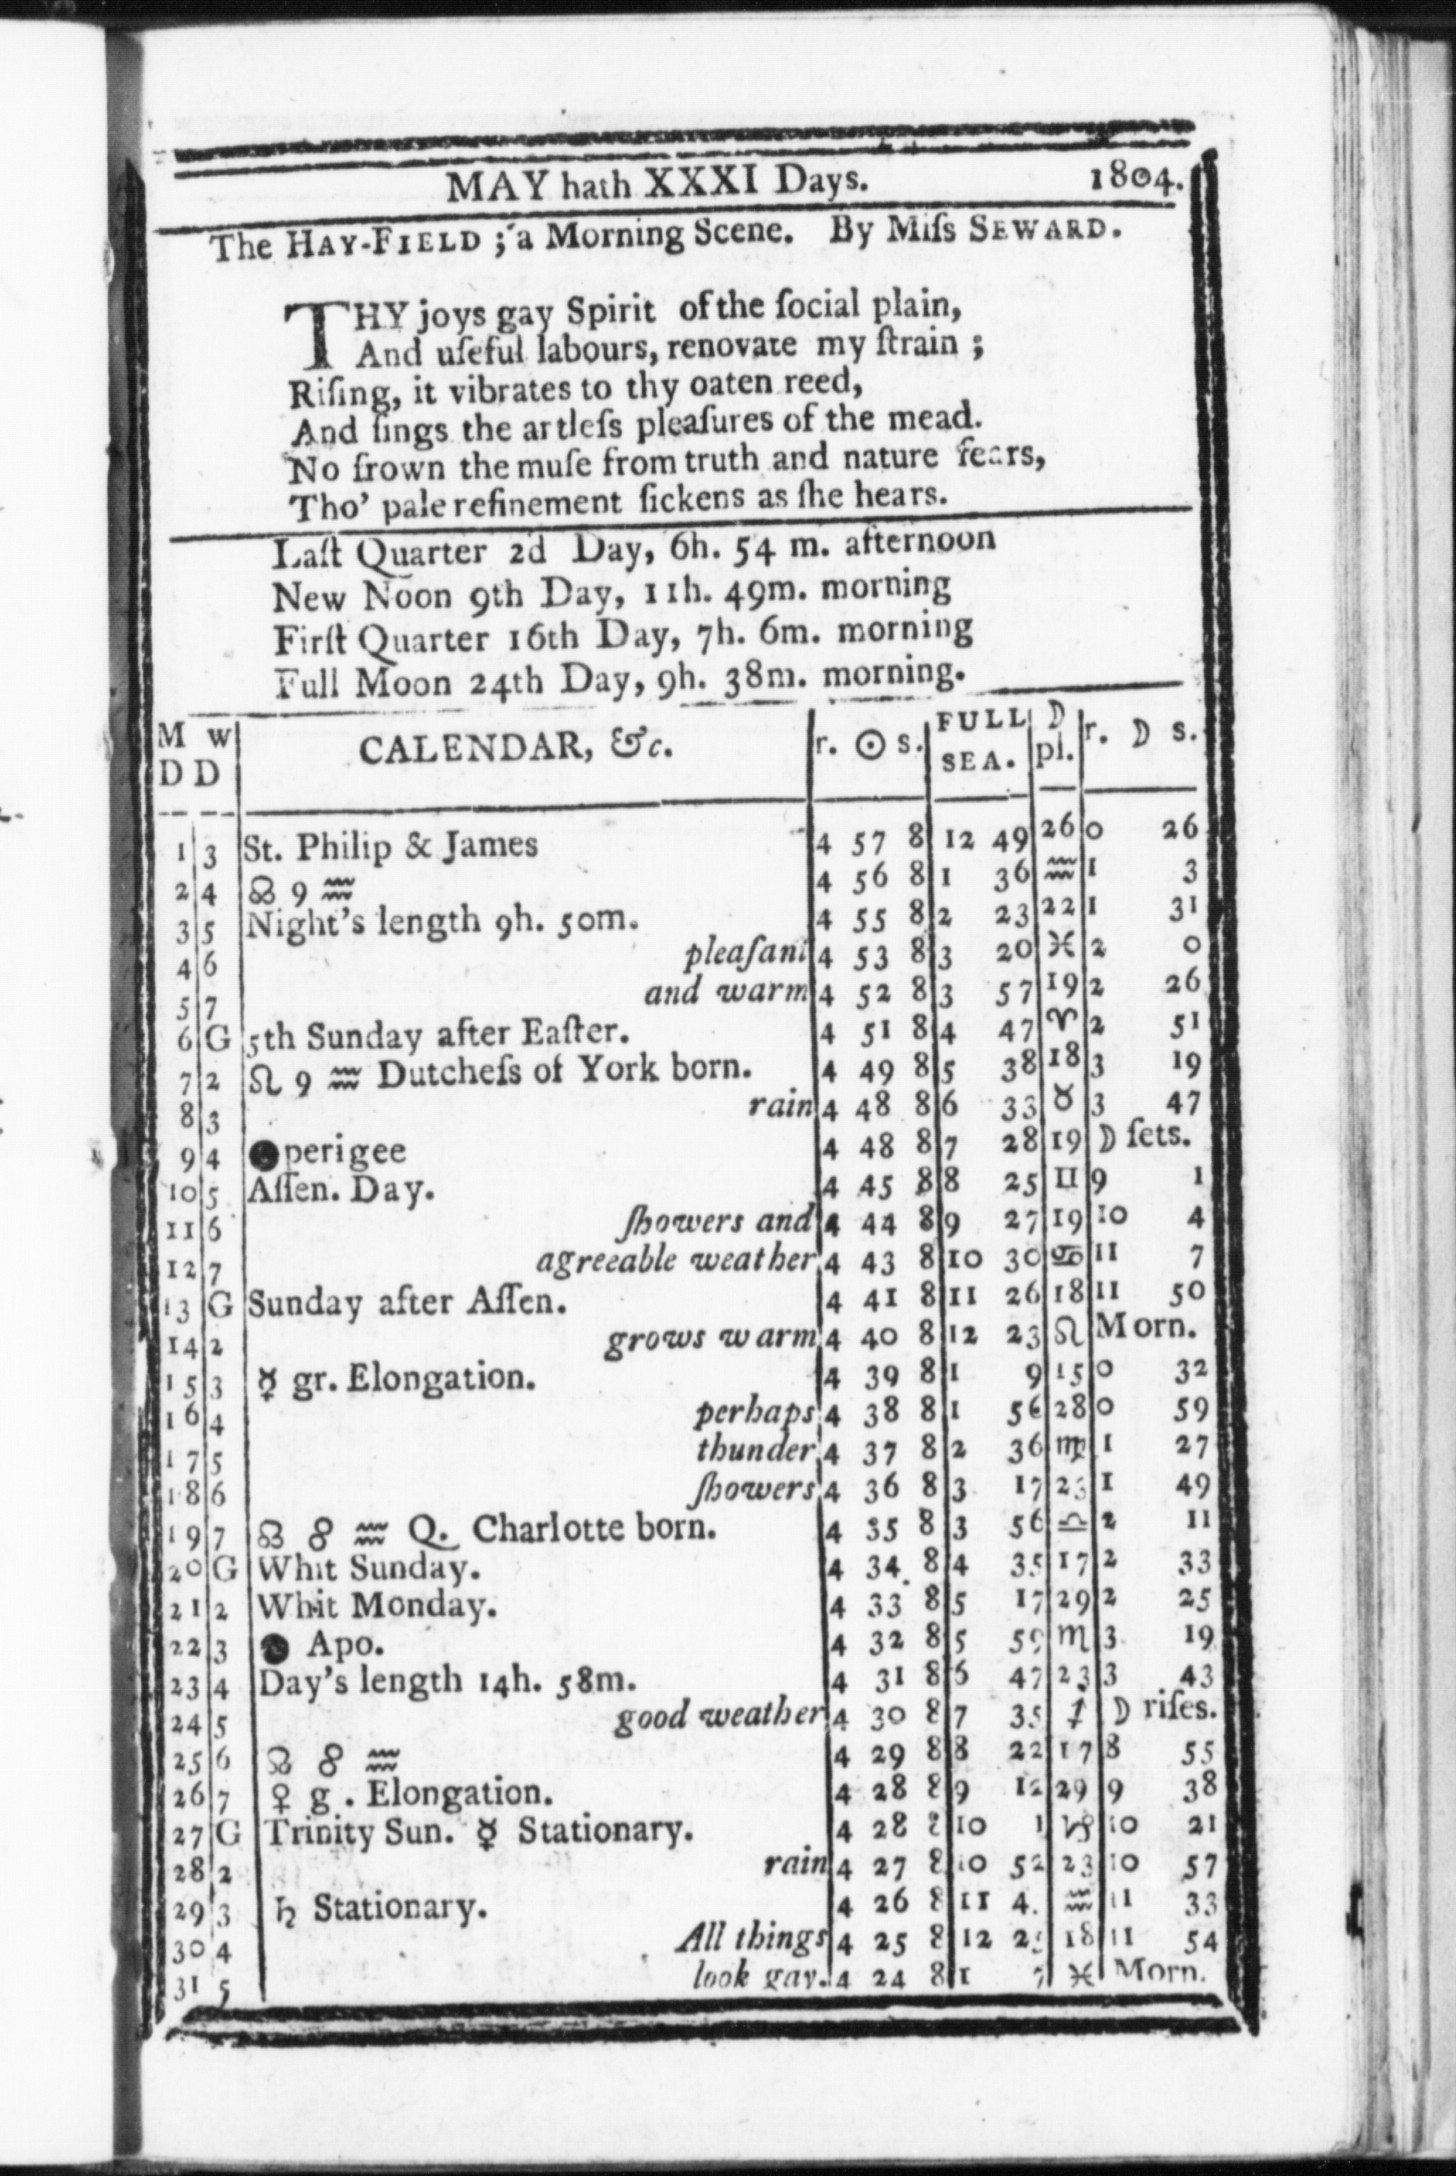 MAY hath XXXI Days. 1804.
The HAY-FIELD ; a Morning Scene. By Miſs SEWARD.
THY joys gay Spirit of the ſocial plain,
And uſeful labours, renovate my ſtrain ;
Riſing, it vibrates to thy oaten reed,
And ſings the artleſs pleaſures of the mead.
No frown the muſe from truth and nature fears,
Tho' pale refinement ſickens as ſhe hears.
Laſt Quarter 2d Day, 6h. 54 m. afternoon
New Noon 9th Day, 11h. 49m. morning
Firſt Quarter 16th Day, 7h. 6m. morning
Full Moon 24th Day, 9h. 38m. morning.
M D W D CALENDAR, &c. r. ☉ s. FULL SEA. ☽ pl. r. ☽ s.
1 3 St. Philip & James 4 57 8 12 49 26 0 26
2 4 ☊ 9 ♒ 4 56 8 1 36 ♒ 1 3
3 5 Night's length 9h. 50m. 4 55 8 2 23 22 1 31
4 6 pleaſant 4 53 8 3 20 ♓ 2 0
5 7 and warm 4 52 8 3 57 19 2 26
6 G 5th Sunday after Eaſter. 4 51 8 4 47 ♈ 2 51
7 2 ☊ 9 ♒ Dutcheſs of York born. 4 49 8 5 38 18 3 19
8 3 rain 4 48 8 6 33 ♉ 3 47
9 4 ● perigee 4 48 8 7 28 19 ☽ ſets.
10 5 Aſſen. Day. 4 45 8 8 25 ♊ 9 1
11 6 ſhowers and 4 44 8 9 27 19 10 4
12 7 agreeable weather 4 43 8 10 30 ♋ 11 7
13 G Sunday after Aſſen. 4 41 8 11 26 18 11 50
14 2 grows warm 4 40 8 12 23 ♌ Morn.
15 3 ☿ gr. Elongation. 4 39 8 1 9 15 0 32
16 4 perhaps 4 38 8 1 56 28 0 59
17 5 thunder 4 37 8 2 36 ♍ 1 27
18 6 ſhowers 4 36 8 3 17 23 1 49
19 7 ☊ 8 ♒ Q. Charlotte born. 4 35 8 3 56 ♎ 2 11
20 G Whit Sunday. 4 34 8 4 35 17 2 33
21 2 Whit Monday. 4 33 8 5 17 29 2 25
22 3 ● Apo. 4 32 8 5 59 ♏ 3 19
23 4 Day's length 14h. 58m. 4 31 8 6 47 23 3 43
24 5 good weather 4 30 8 7 35 ♐ ☽ riſes.
25 6 ☊ 8 ♒ 4 29 8 8 22 17 8 55
26 7 ♀ g . Elongation. 4 28 8 9 12 29 9 38
27 G Trinity Sun. ☿ Stationary. 4 28 8 10 1 ♑ 10 21
28 2 rain 4 27 8 10 52 23 10 57
29 3 ♄ Stationary. 4 26 8 11 4 ♒ 11 33
30 4 All things 4 25 8 12 18 11 54
31 5 look gay. 4 24 8 1 7 ♓ Morn.